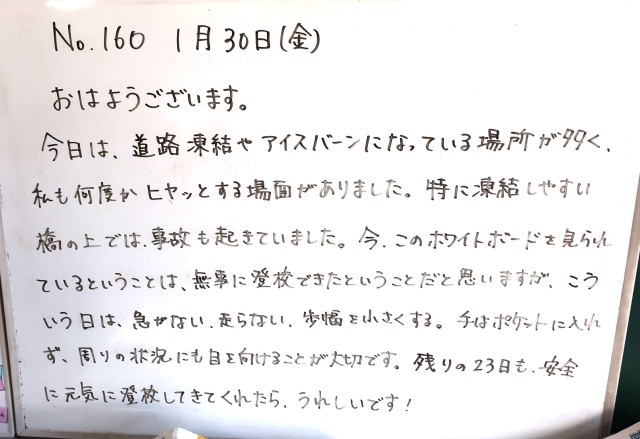 No.160 1月30日(金)
おはようございます。
今日は、道路凍結やアイスバーンになっている場所が多く、
私も何度かヒヤッとする場面がありました。特に凍結しやすい
橋の上では、事故も起きていました。今、このホワイトボードを見られ
ているということは、無事に登校できたということだと思いますが、こう
いう日は、急がない、走らない、歩幅を小さくする。手はポケットに入れ
ず、周りの状況にも目を向けることが大切です。残りの23日も、安全
に元気に登校してきてくれたら、うれしいです!